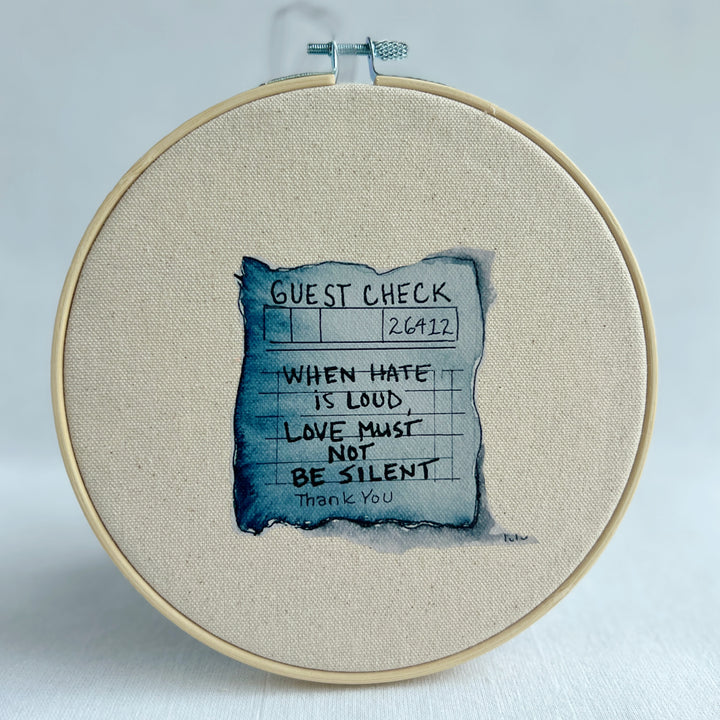 GUEST CHECK
26412
WHEN HATE
IS LOUD,
LOVE MUST
NOT
BE SILENT
Thank You